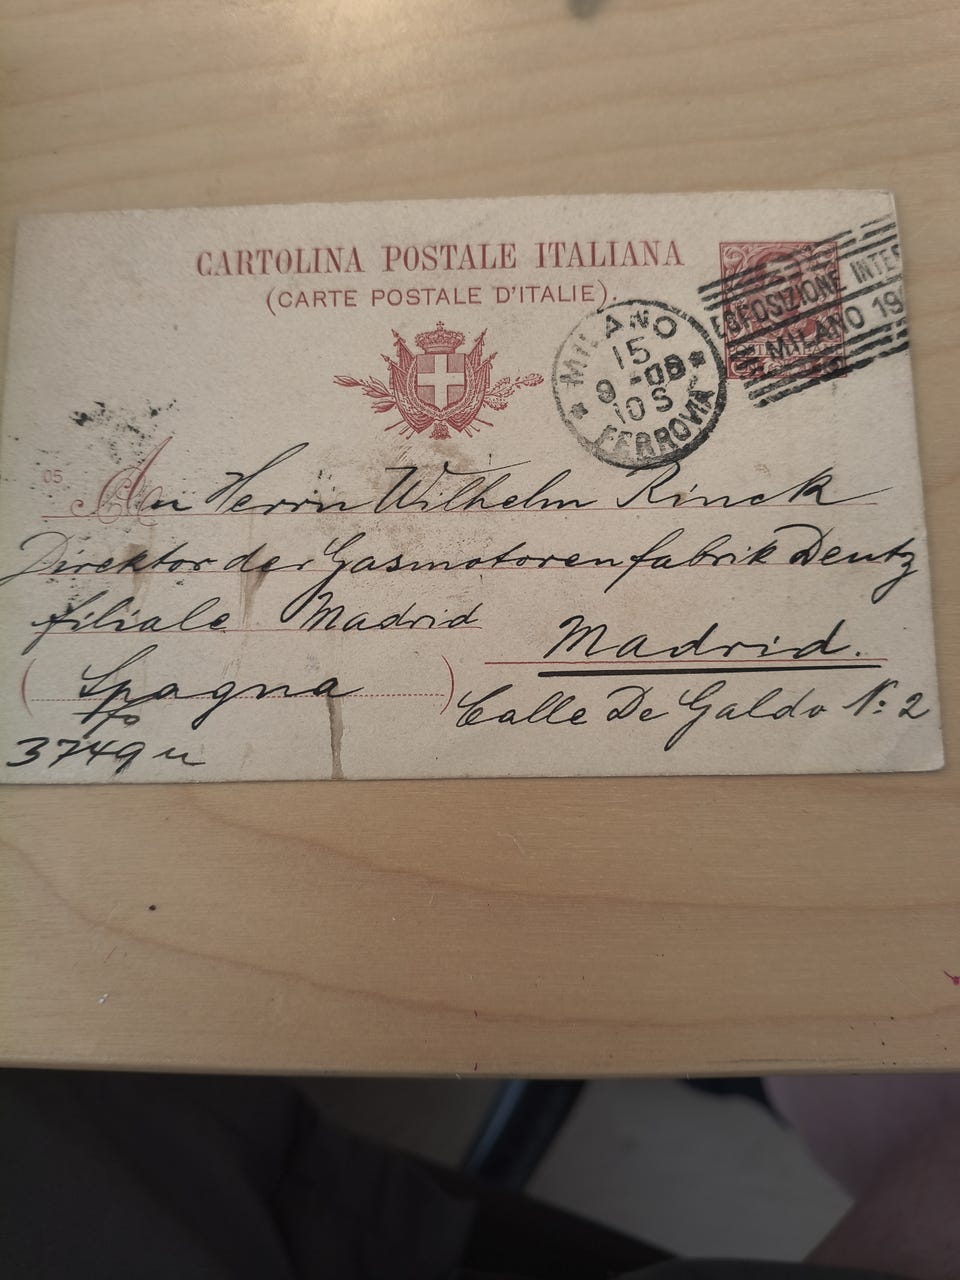 CARTOLINA POSTALE ITALIANA
(CARTE POSTALE D'ITALIE).
MILANO
15
9 -06
10 S
FERROVIA
ESPOSIZIONE INTER
MILANO 19
05
An Herrn Wilhelm Rinck
Direktor der Gasmotorenfabrik Deutz
filiale Madrid
Madrid.
(Spagna)
Calle De Galdo N: 2
3749 u